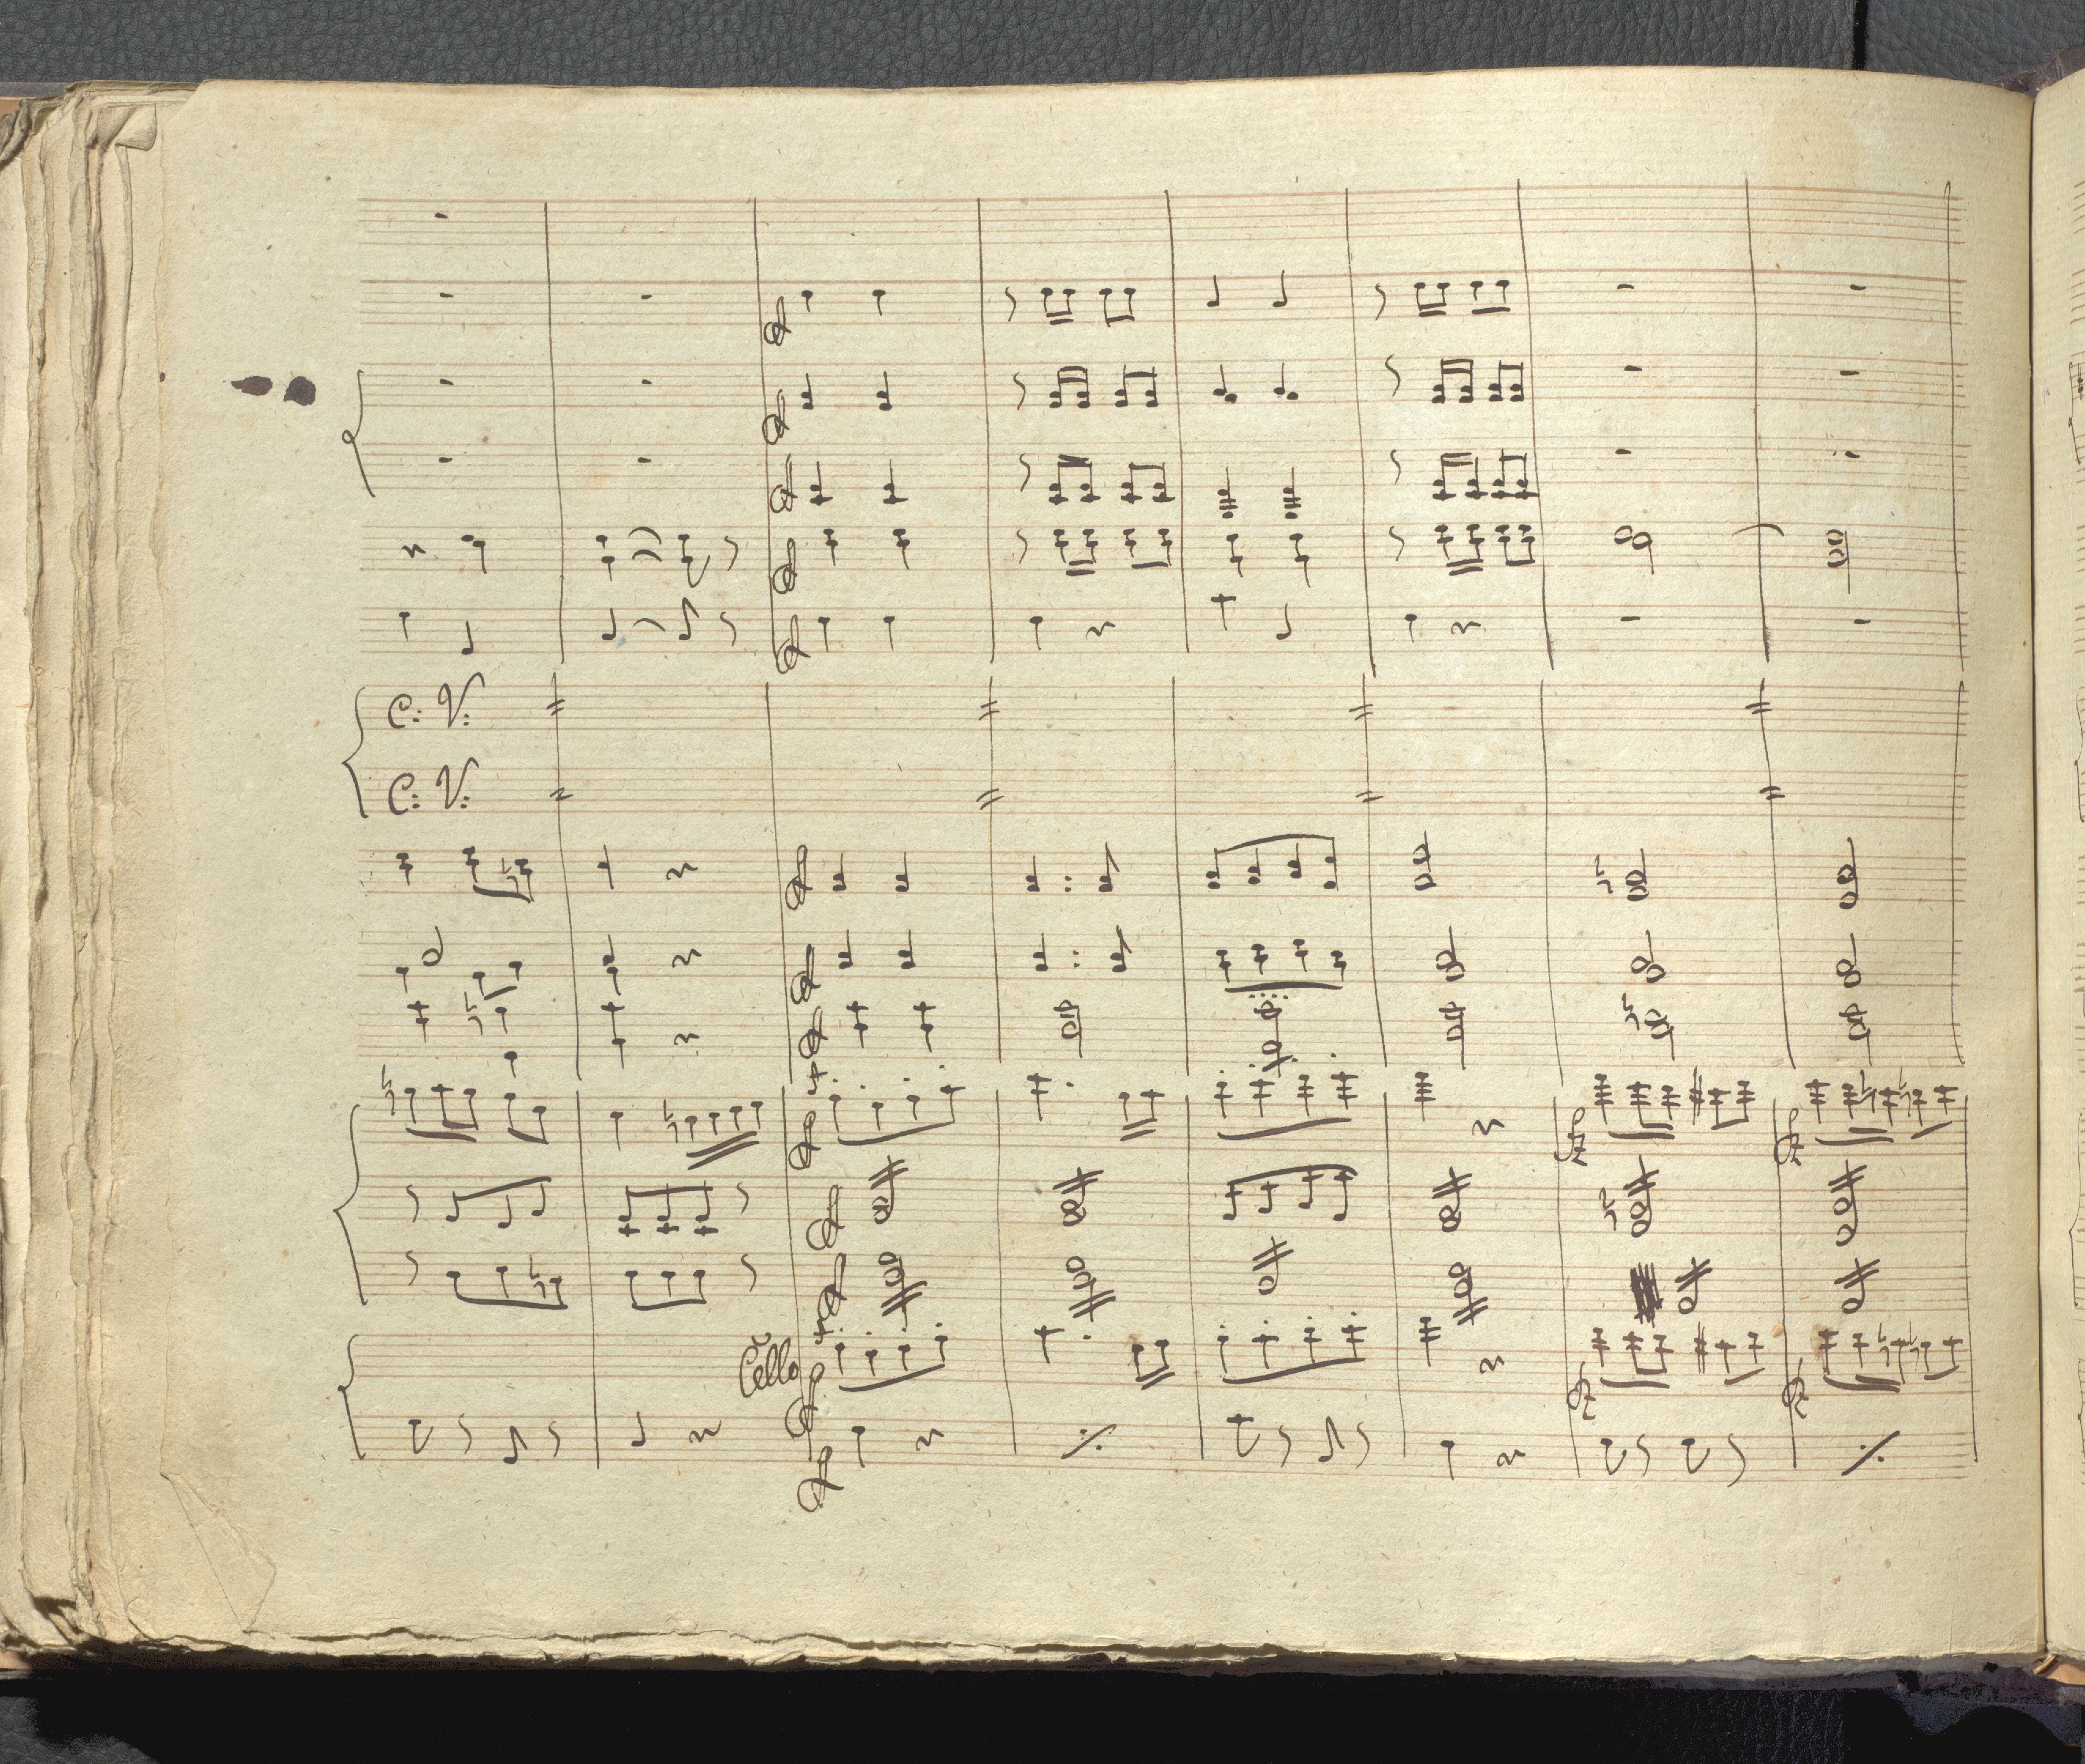 C: V:
C: V:
Cello